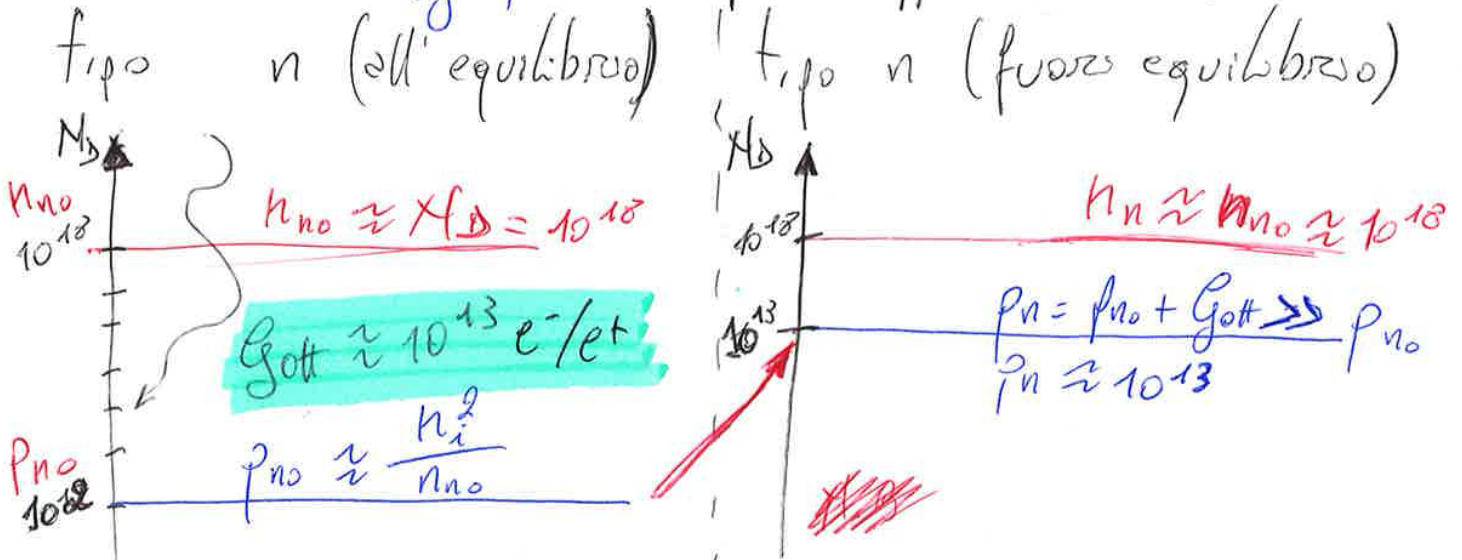 tipo n (all' equilibrio)
N_D
n_no
10^18
n_no ≈ N_D = 10^18
G_ott ≈ 10^13 e-/e+
p_no ≈ n_i^2 / n_no
p_no
tipo n (fuori equilibrio)
N_D
10^18
n_n ≈ n_no ≈ 10^18
10^13
p_n = p_no + G_ott >> p_no
p_n ≈ 10^13